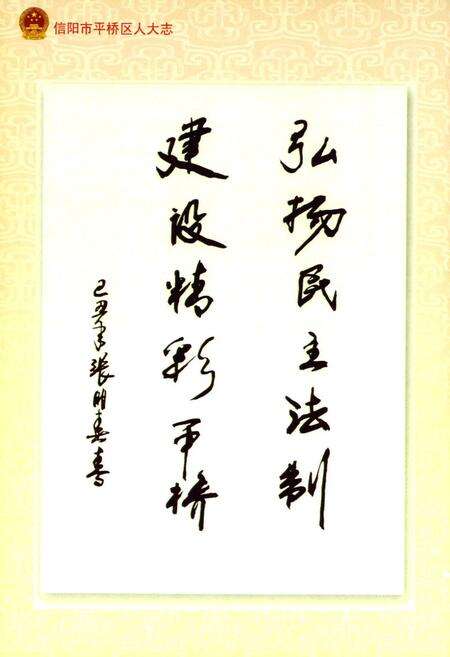 信阳市平桥区人大志
弘扬民主法制
建设精彩平桥
己丑年张明春书